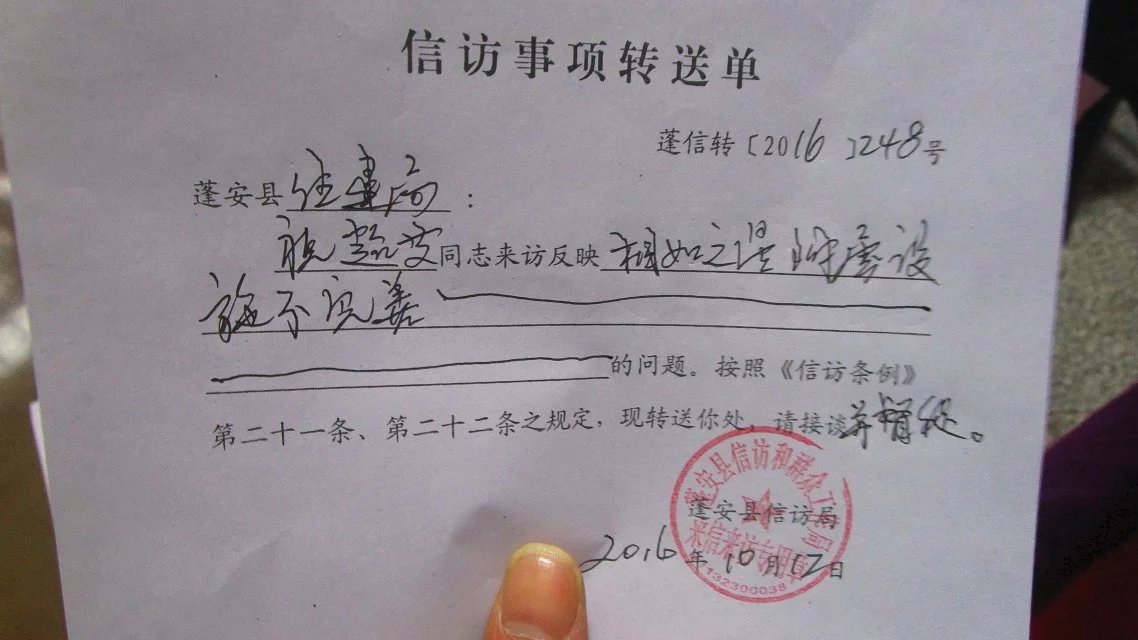 信访事项转送单
蓬信转〔2016〕248号
蓬安县住建局：
祝超文同志来访反映相如之湿附属设
施不完善
的问题。按照《信访条例》
第二十一条、第二十二条之规定，现转送你处，请接谈并
蓬安县信访局
2016年10月12日
蓬安县信访和群众工作局
来信来访专用章